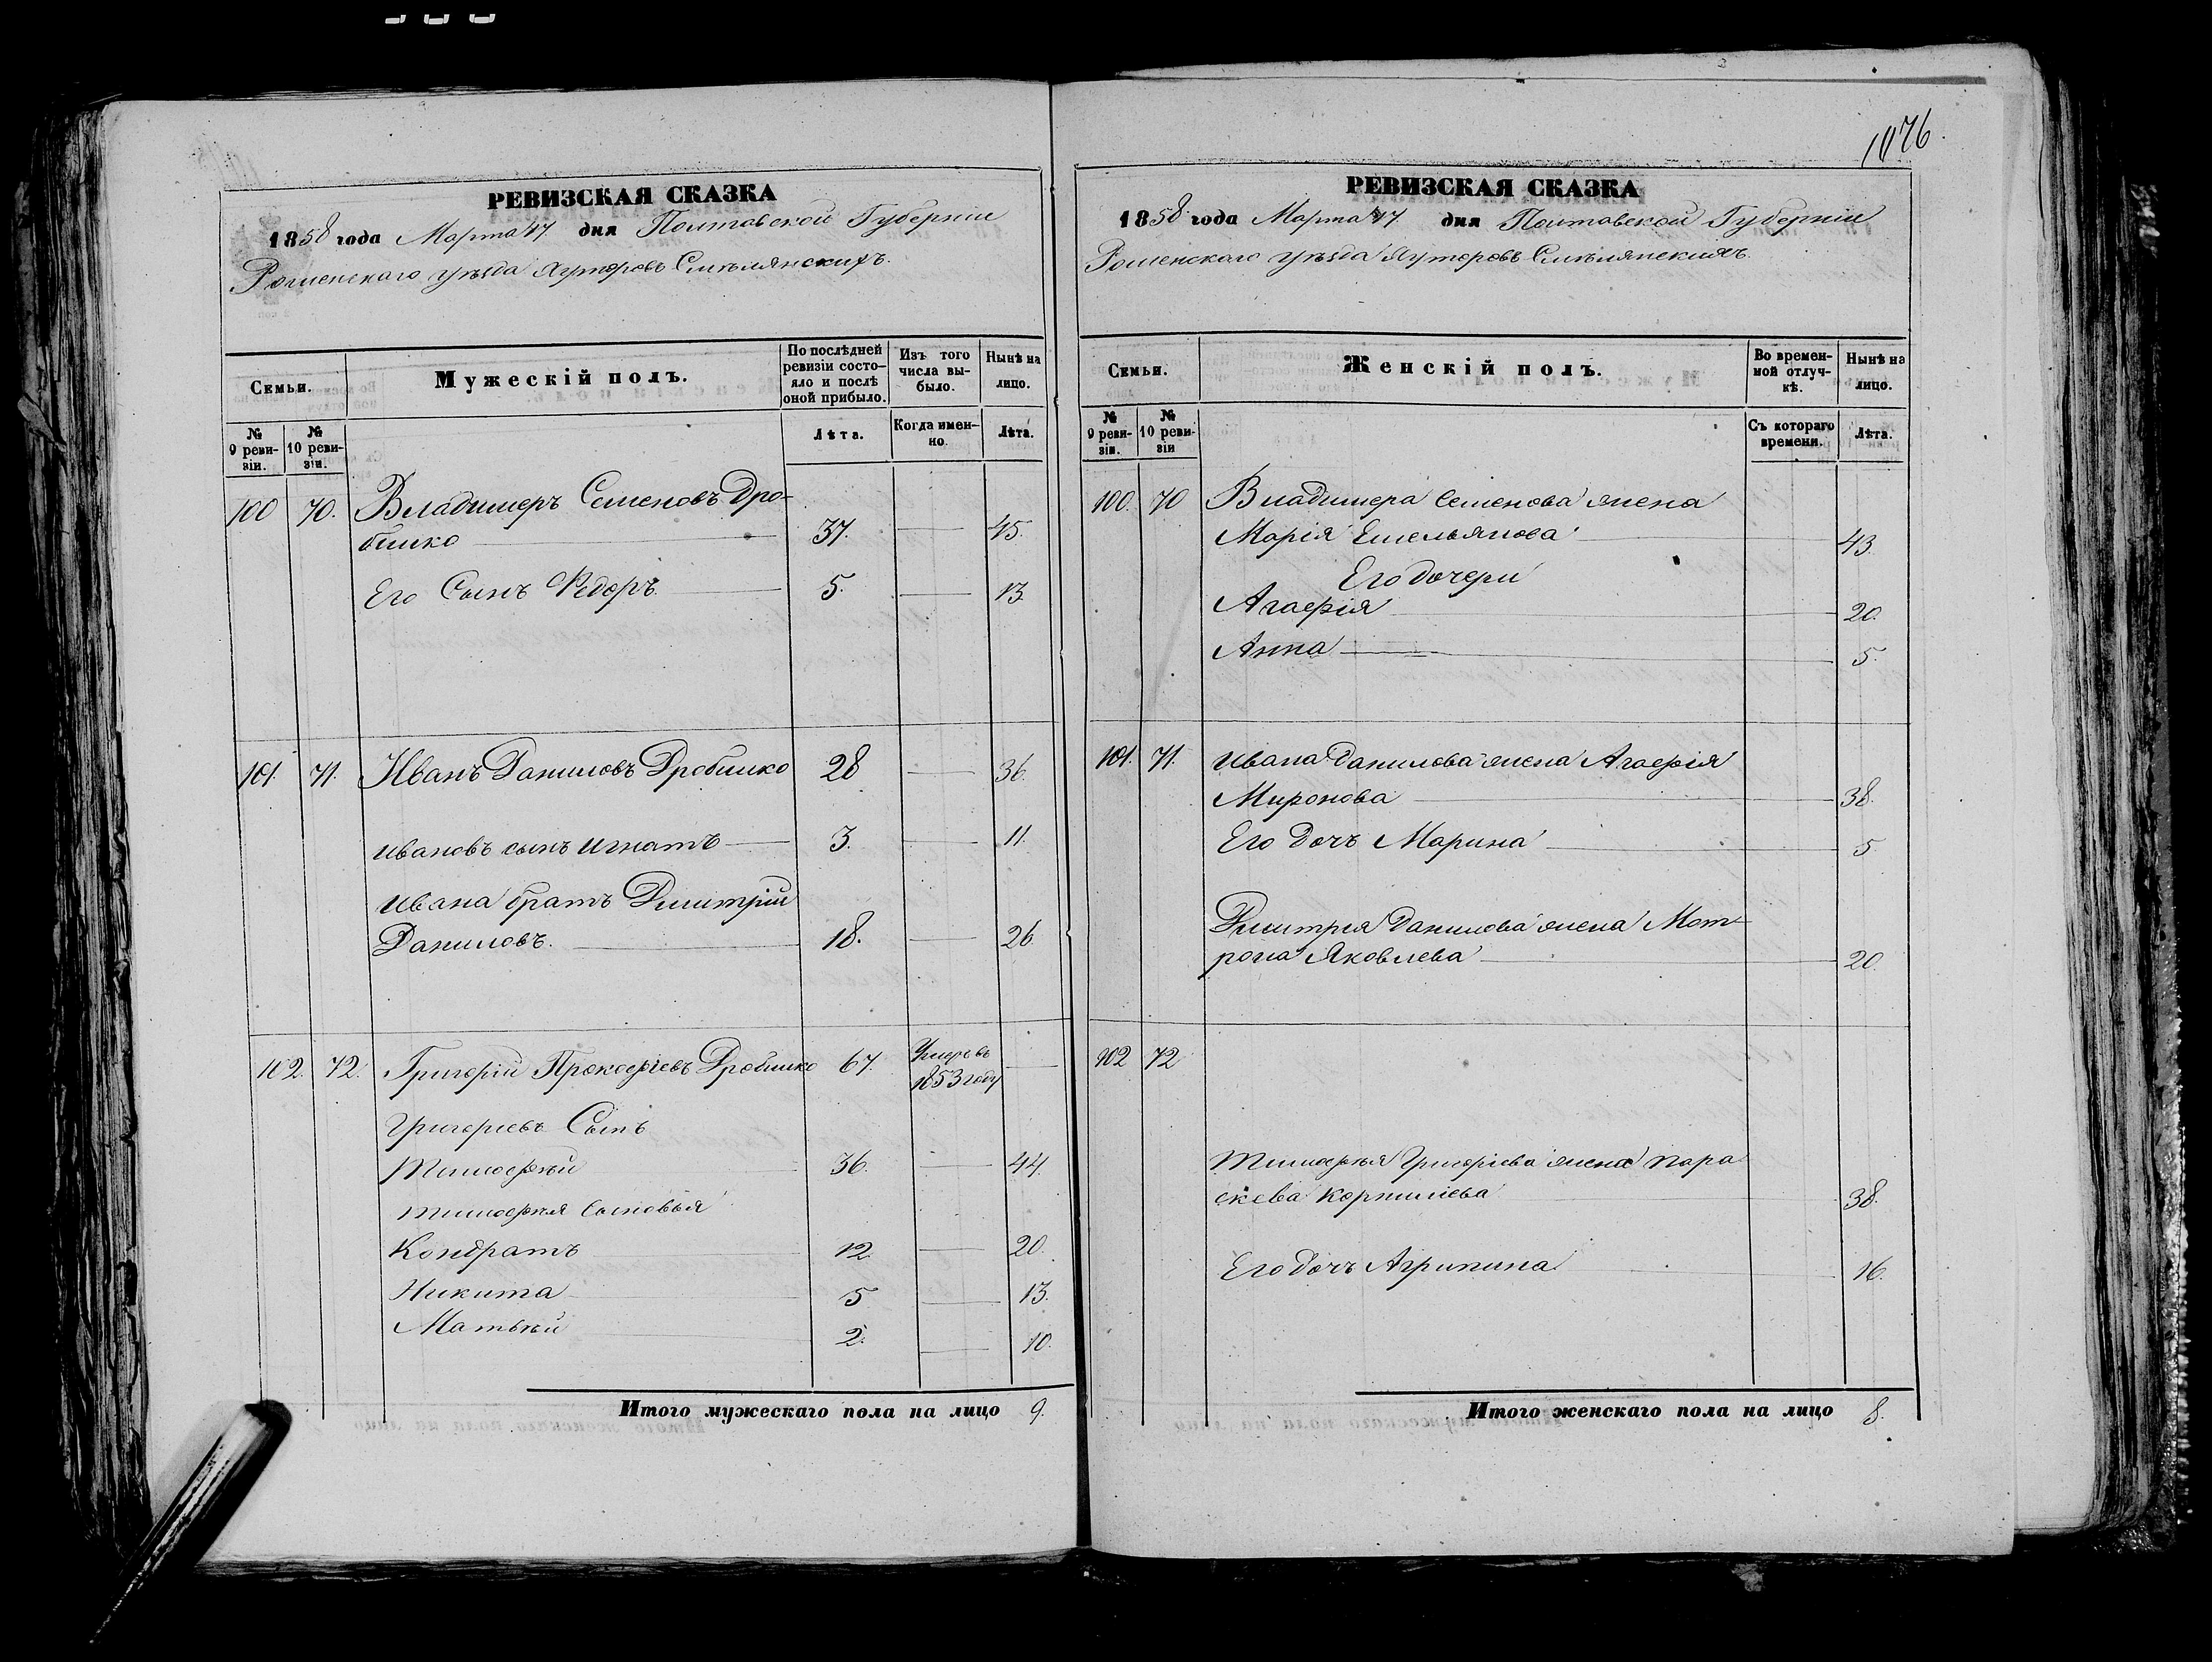 1076.
РЕВИЗСКАЯ СКАЗКА
1858 года Марта 17 дня Полтавской Губерніи
Роменскаго уѣзда Хуторовъ Смѣлянскихъ.
Семьи.
Мужескій полъ.
По послѣдней ревизіи состояло и послѣ оной прибыло.
Изъ того числа выбыло.
Нынѣ на лицо.
№ 9 ревизіи.
№ 10 ревизіи.
Лѣта.
Когда именно.
Лѣта.
100 70. Владимеръ Семеновъ Дро-
билко 37. 45.
Его Сынъ Федоръ 5. 13.
101. 71. Иванъ Даниловъ Дробилко 28 36.
Ивановъ сынъ Игнатъ 3. 11.
Ивана братъ Димитрій
Даниловъ. 18. 26.
102. 72. Григорій Прокофіевъ Дробилко 67. Умеръ въ
1853 году
Григоріевъ Сынъ
Тимофѣй 36. 44.
Тимофѣя Сыновья
Кондратъ 12. 20.
Никита 5 13.
Матвѣй 2. 10.
Итого мужескаго пола на лицо 9.
РЕВИЗСКАЯ СКАЗКА
1858 года Марта 17 дня Полтавской Губерніи
Роменскаго уѣзда Хуторовъ Смѣлянскихъ.
Семьи.
Женскій полъ.
Во временной отлучкѣ.
Нынѣ на лицо.
№ 9 ревизіи.
№ 10 ревизіи
Съ котораго времени.
Лѣта.
100. 70 Владимера Семенова жена
Марія Емельянова 43.
Его дочери
Агафія 20.
Анна 5.
101. 71. Ивана Данилова жена Агафія
Миронова 38.
Его дочь Марина 5.
Димитрия Данилова жена Мот-
рона Яковлева 20.
102 72
Тимофѣя Григоріева жена Пара
скева Корнилиева 38.
Его дочь Агрипина 16.
Итого женскаго пола на лицо 8.